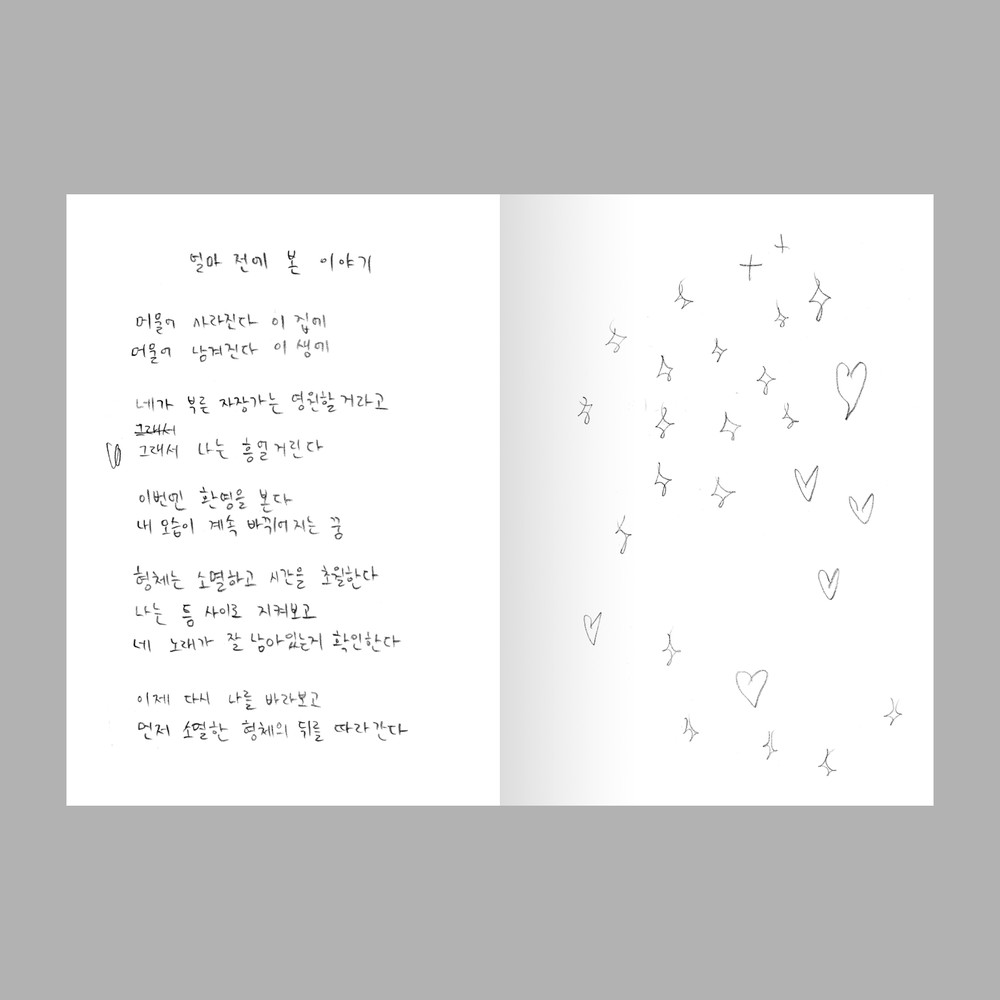 얼마 전에 본 이야기
머물어 사라진다 이 집에
머물어 남겨진다 이 생에
네가 부른 자장가는 영원할거라고
그래서
그래서 나는 흥얼거린다
이번엔 환영을 본다
내 모습이 계속 바뀌어지는 꿈
형체는 소멸하고 시간을 초월한다
나는 틈 사이로 지켜보고
네 노래가 잘 남아있는지 확인한다
이제 다시 나를 바라보고
먼저 소멸한 형체의 뒤를 따라간다